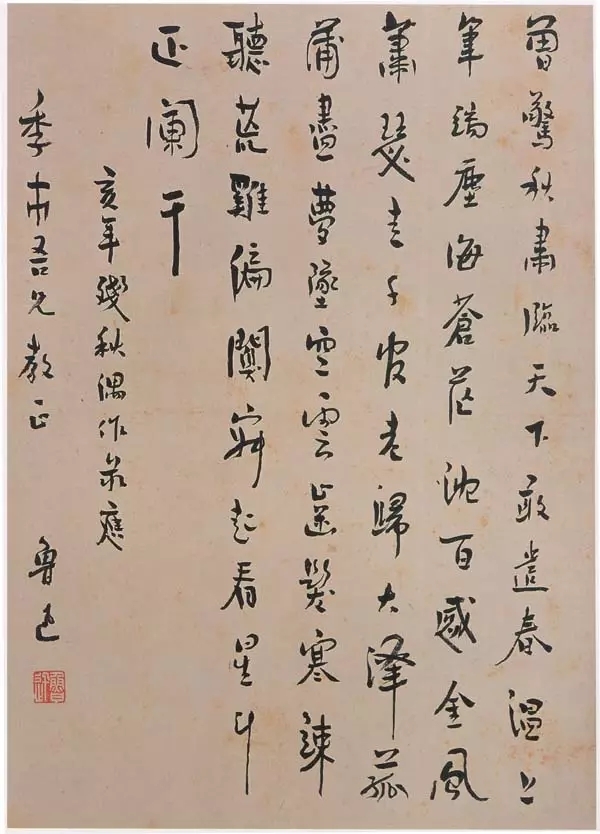 曾驚秋肅臨天下敢遣春溫上
筆端塵海蒼茫沈百感金風
蕭瑟走千官老歸大澤菰
蒲盡夢墜空雲齒髮寒竦
聽荒雞偏闃寂起看星斗
正闌干
亥年殘秋偶作录應
季市吾兄教正 魯迅
魯迅